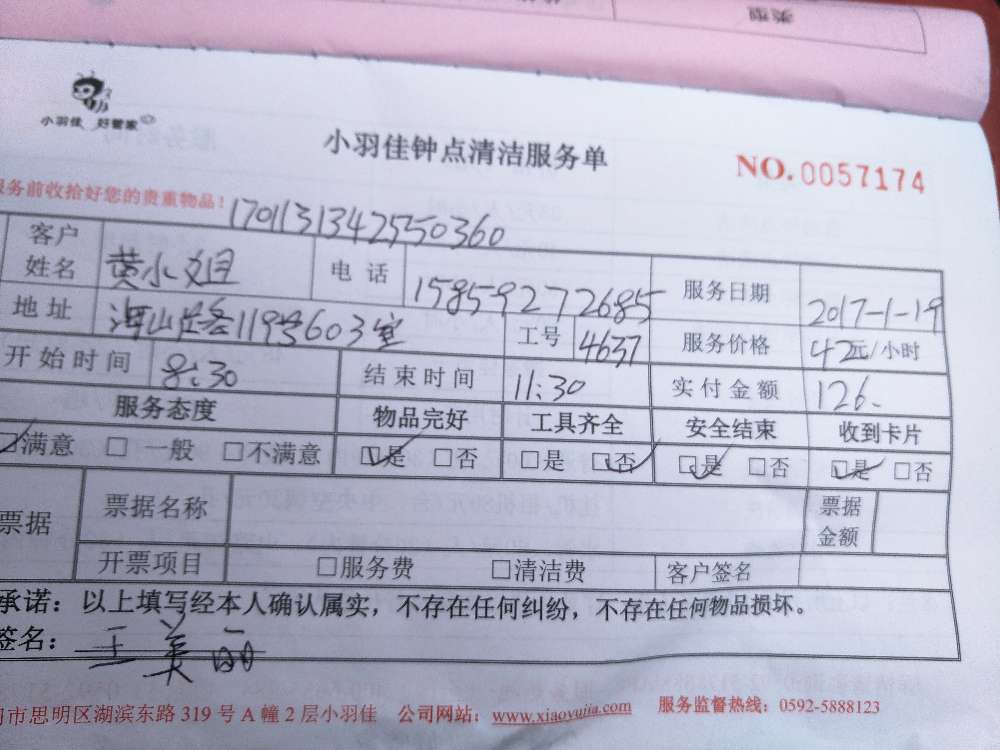 类型
小羽佳 好管家
小羽佳钟点清洁服务单
NO.0057174
务前收拾好您的贵重物品!
1701131342550360
客户姓名 黄小姐 电话 15859272685 服务日期 2017-1-19
地址 洪山庄路119号603室 工号 4637 服务价格 42元/小时
开始时间 8:30 结束时间 11:30 实付金额 126.
服务态度 物品完好 工具齐全 安全结束 收到卡片
☑满意 □一般 □不满意 ☑是 □否 □是 ☑否 ☑是 □否 ☑是 □否
票据 票据名称 票据金额
开票项目 □服务费 □清洁费 客户签名
承诺:以上填写经本人确认属实,不存在任何纠纷,不存在任何物品损坏。
签名:王美丽
市思明区湖滨东路 319 号 A 幢 2 层小羽佳 公司网站:www.xiaoyujia.com 服务监督热线:0592-5888123